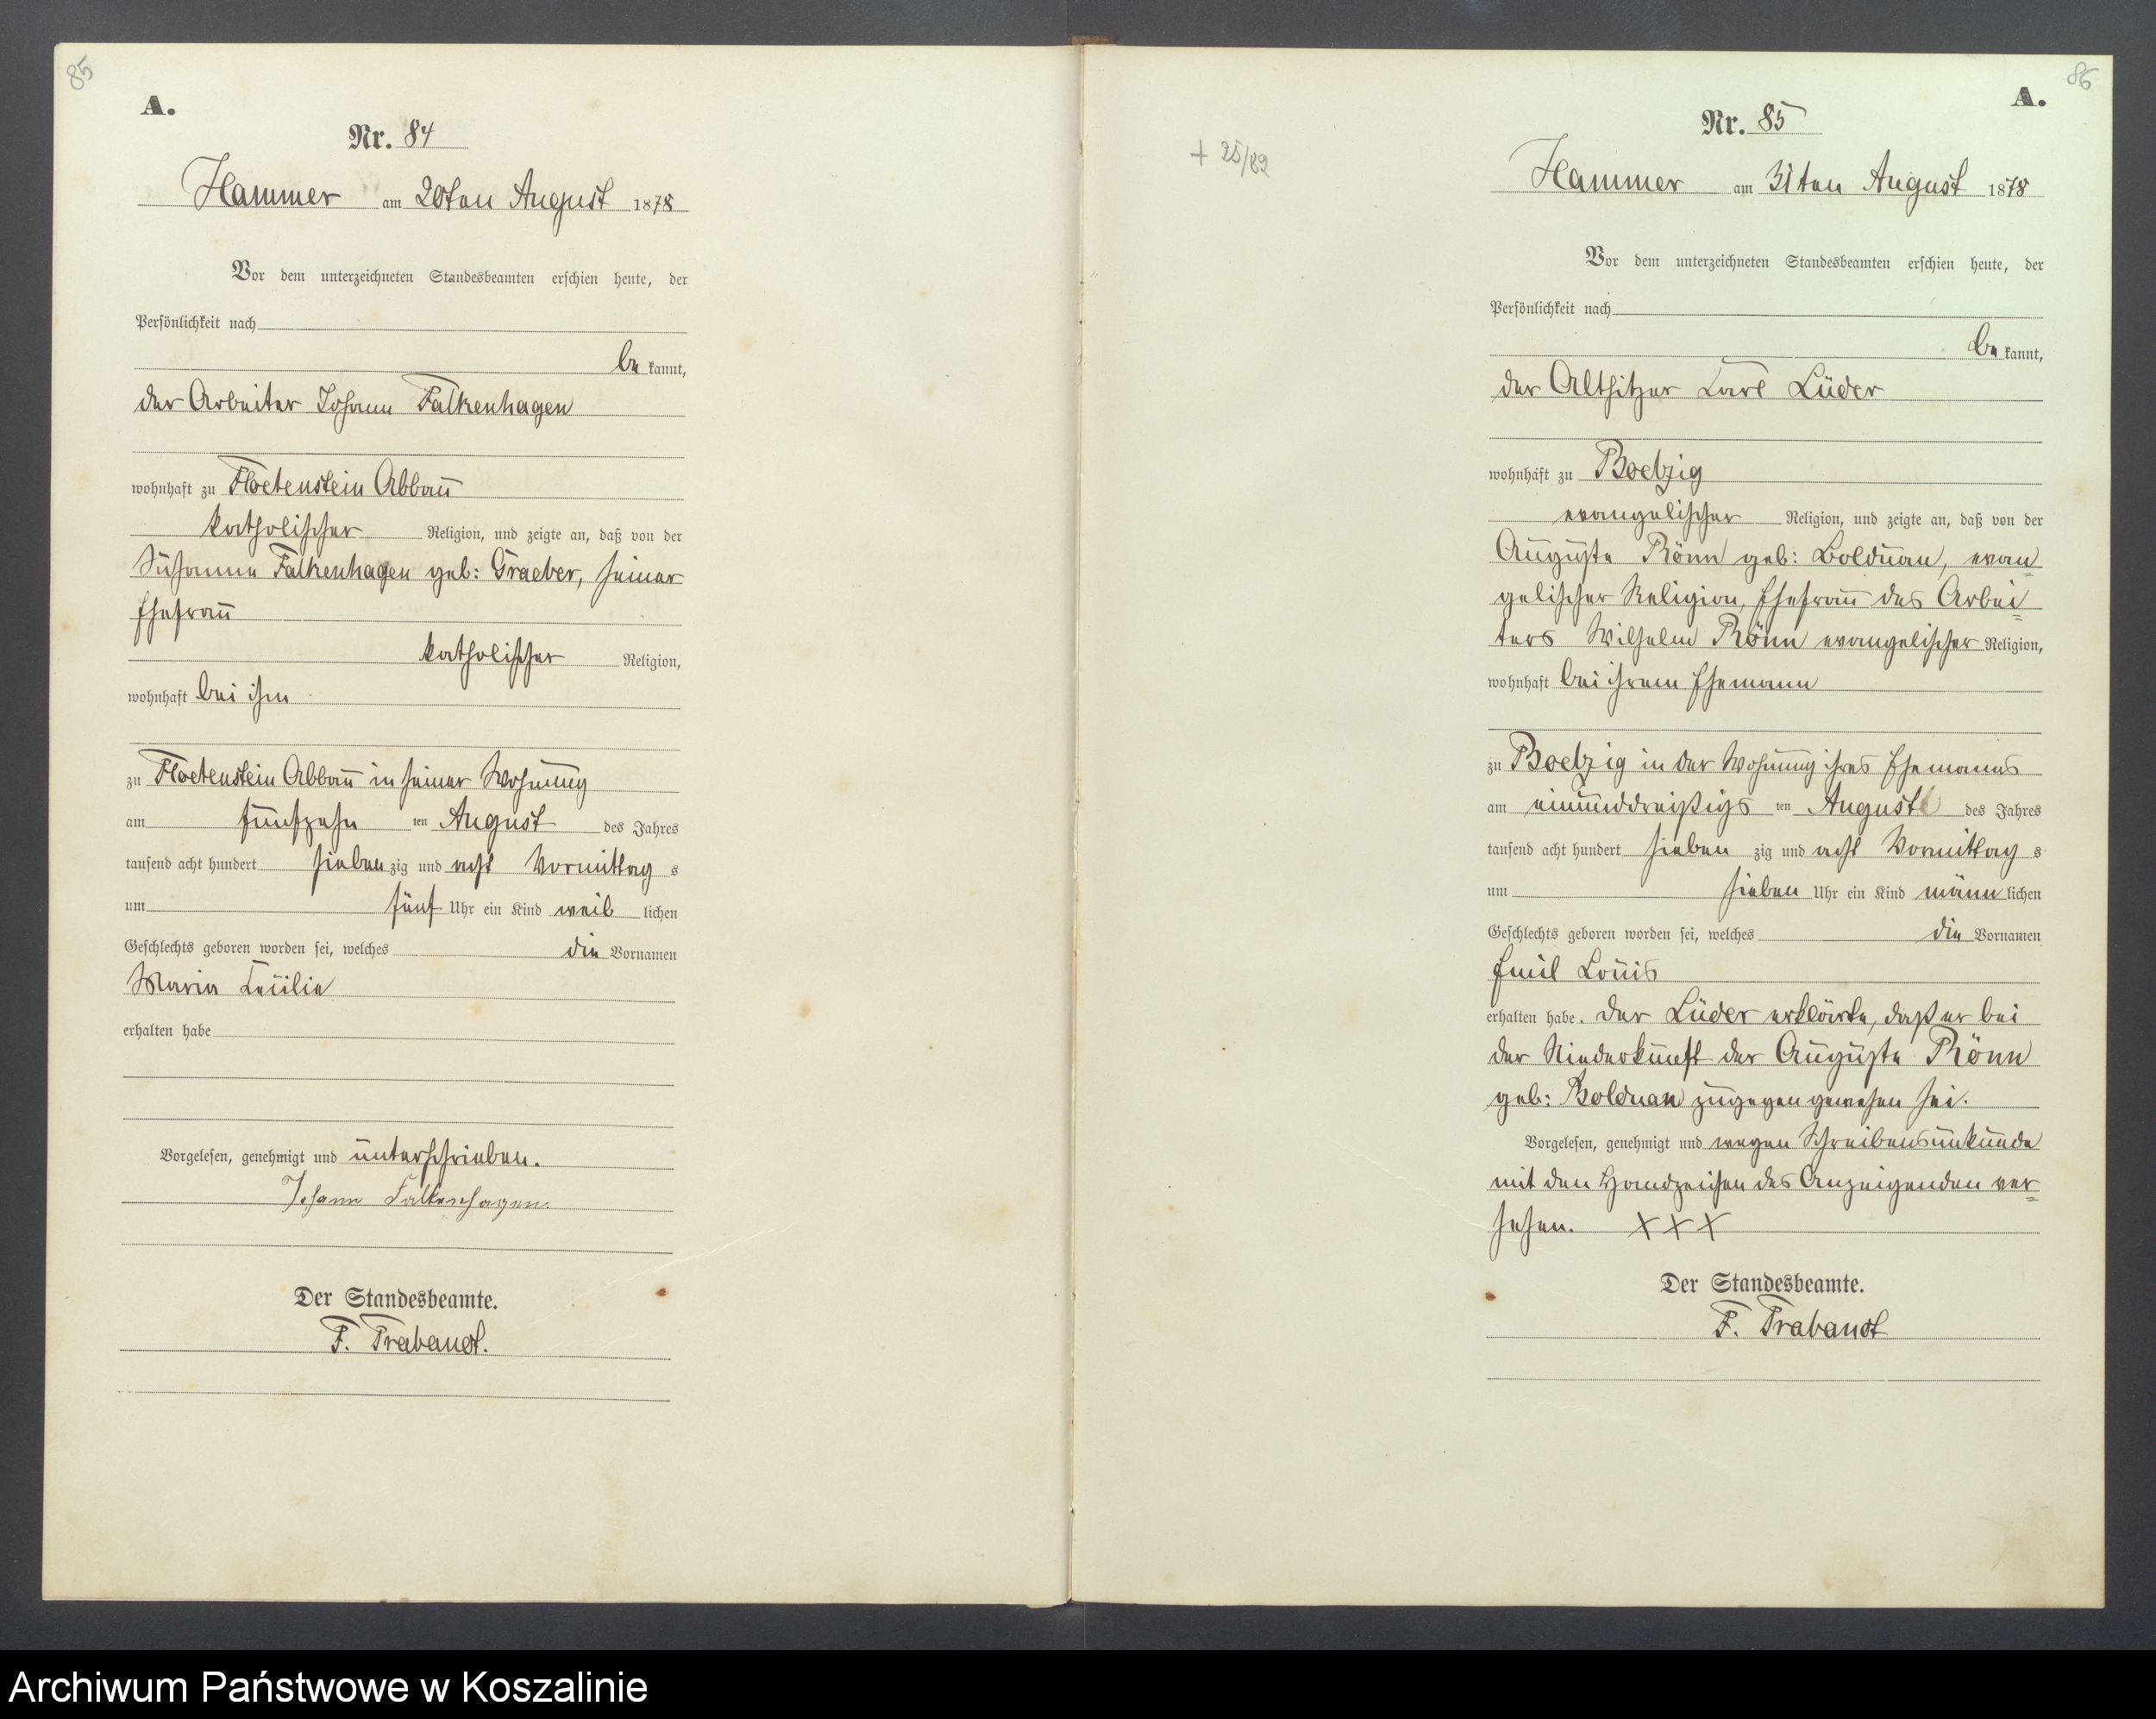 85
A.
Nr. 84
Hammer am 20ten August 1878
Vor dem unterzeichneten Standesbeamten erschien heute, der
Persönlichkeit nach
be kannt,
der Arbeiter Johann Falkenhagen
wohnhaft zu Floetenstein Abbau
katholischer Religion, und zeigte an, daß von der
Susanna Falkenhagen geb: Graeber, seiner
Ehefrau
katholischer Religion,
wohnhaft bei ihm
zu Floetenstein Abbau in seiner Wohnung
am fünfzehn ten August des Jahres
tausend acht hundert sieben zig und acht Vormittag s
um fünf Uhr ein Kind weib lichen
Geschlechts geboren worden sei, welches die Vornamen
Maria Cecilie
erhalten habe
Vorgelesen, genehmigt und unterschrieben.
Johann Falkenhagen.
Der Standesbeamte.
F. Trabandt.
86
A.
+ 25/82
Nr. 85
Hammer am 31ten August 1878
Vor dem unterzeichneten Standesbeamten erschien heute, der
Persönlichkeit nach
be kannt,
der Altsitzer Carl Lüder
wohnhaft zu Boetzig
evangelischer Religion, und zeigte an, daß von der
Auguste Rönn geb: Bolduan, evan=
gelischer Religion, Ehefrau des Arbei=
ters Wilhelm Rönn evangelischer Religion,
wohnhaft bei ihrem Ehemann
zu Boetzig in der Wohnung ihres Ehemannes
am einunddreißigs ten August des Jahres
tausend acht hundert sieben zig und acht Vormittag s
um sieben Uhr ein Kind männ lichen
Geschlechts geboren worden sei, welches die Vornamen
Emil Louis
erhalten habe. Der Lüder erklärte, daß er bei
der Niederkunft der Auguste Rönn
geb: Bolduan zugegen gewesen sei.
Vorgelesen, genehmigt und wegen Schreibensunkunde
mit den Handzeichen des Anzeigenden ver=
sehen. XXX
Der Standesbeamte.
F. Trabandt
Archiwum Państwowe w Koszalinie